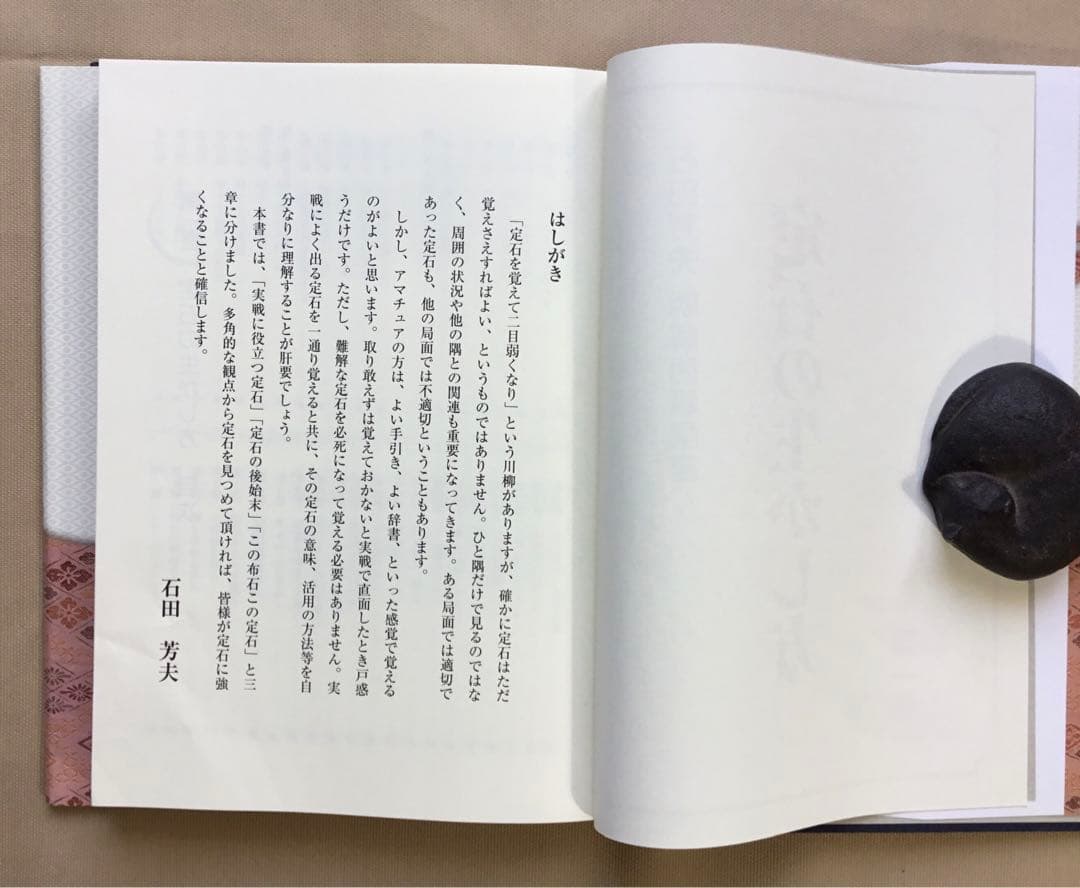 はしがき
「定石を覚えて二目弱くなり」という川柳がありますが、確かに定石はただ
覚えさえすればよい、というものではありません。ひと隅だけで見るのではな
く、周囲の状況や他の隅との関連も重要になってきます。ある局面では適切で
あった定石も、他の局面では不適切ということもあります。
しかし、アマチュアの方は、よい手引き、よい辞書、といった感覚で覚える
のがよいと思います。取り敢えずは覚えておかないと実戦で直面したとき戸惑
うだけです。ただし、難解な定石を必死になって覚える必要はありません。実
戦によく出る定石を一通り覚えると共に、その定石の意味、活用の方法等を自
分なりに理解することが肝要でしょう。
本書では、「実戦に役立つ定石」「定石の後始末」「この布石この定石」と三
章に分けました。多角的な観点から定石を見つめて頂ければ、皆様が定石に強
くなることと確信します。
石田 芳夫